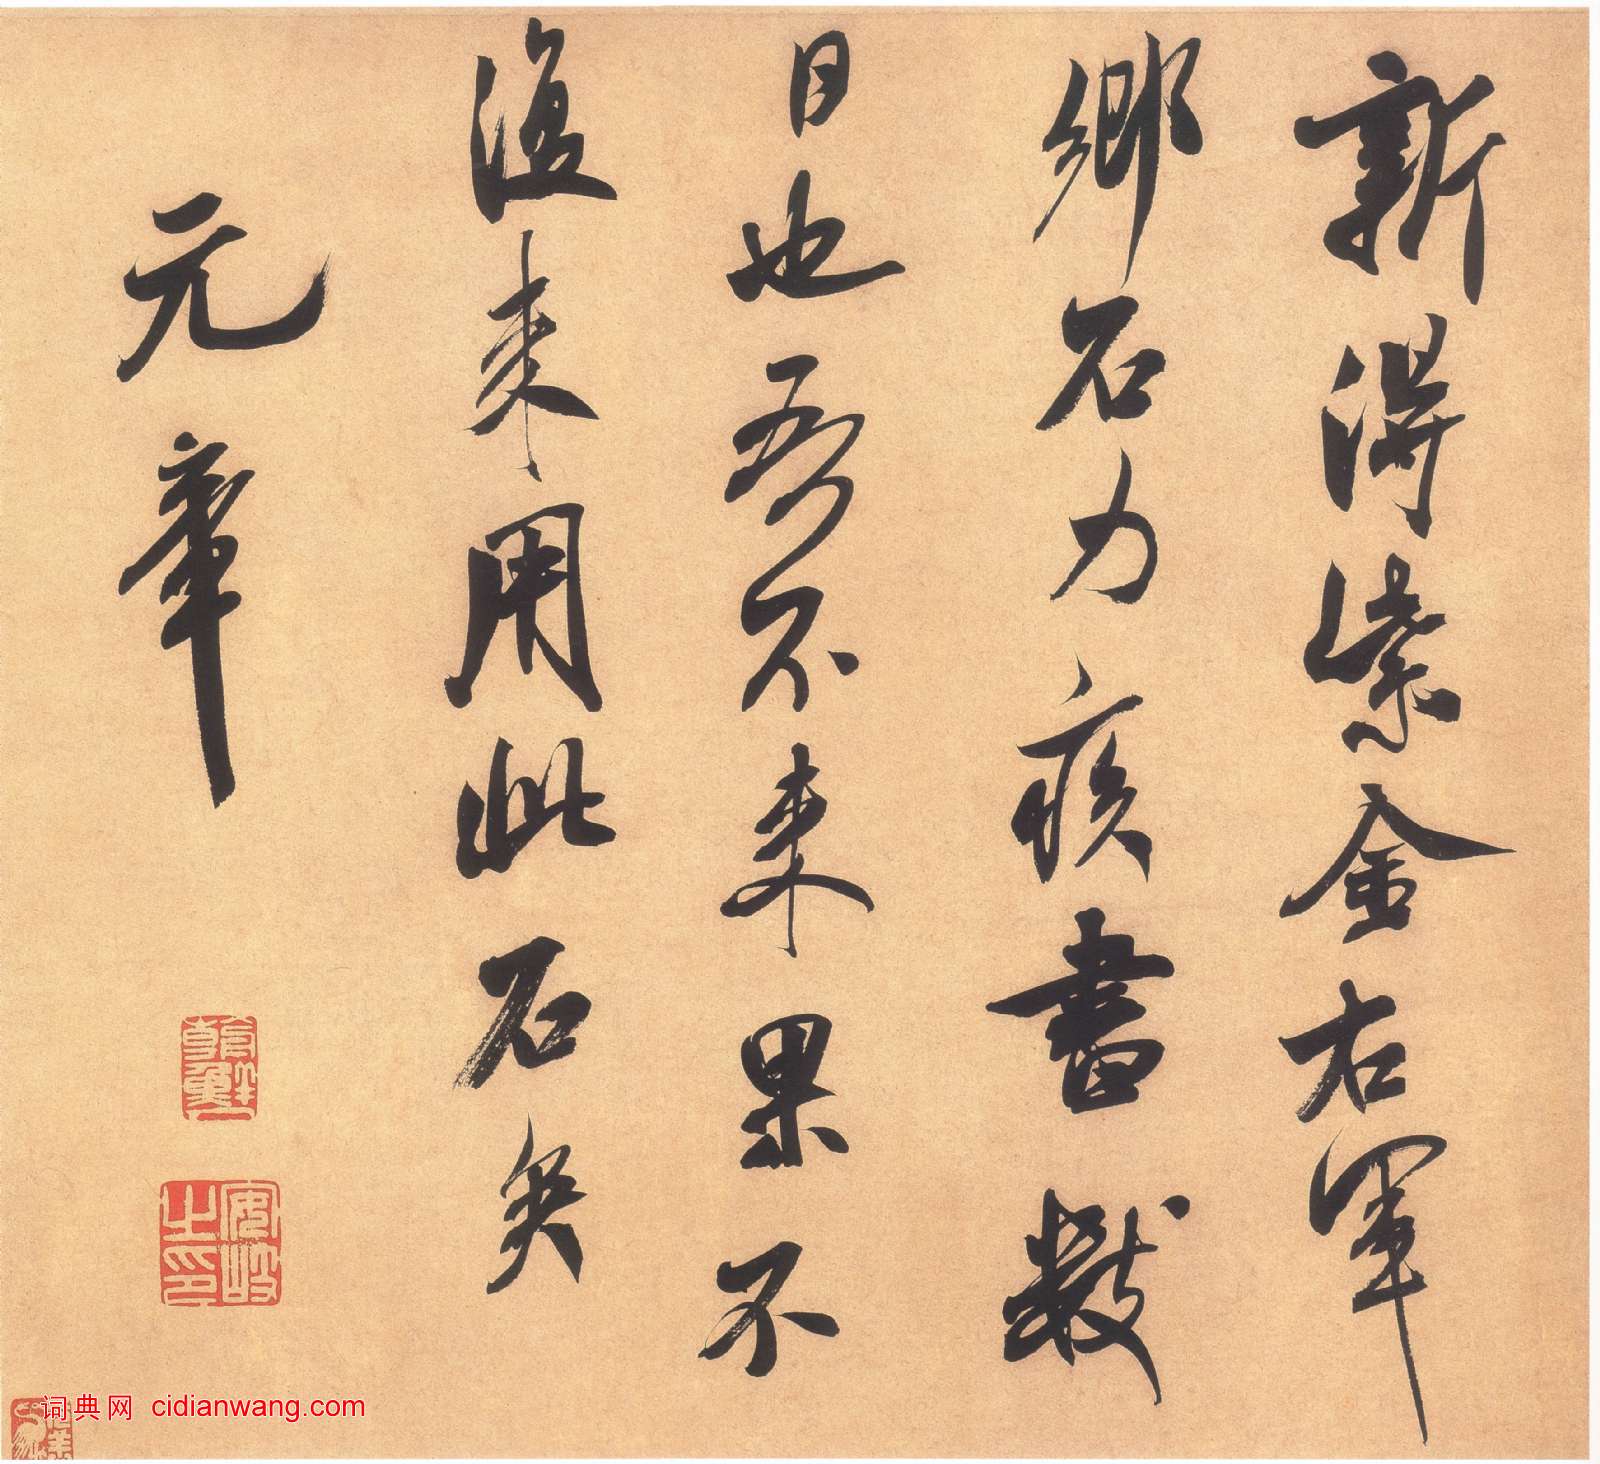 新得紫金右軍
鄉石力疾書數
日也吾不來果不
復來用此石矣
元章
安岐之印
词典网 cidianwang.com